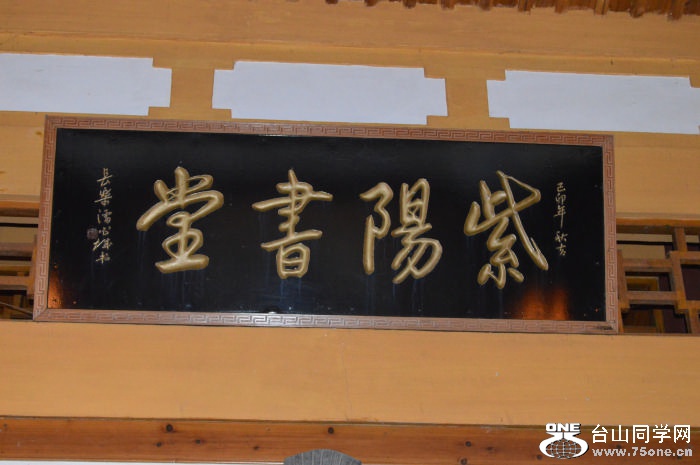 紫陽書堂
己卯年 秋吉
長樂
ONE 台山同学网
www.75one.cn